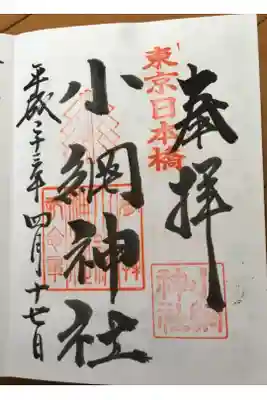 東京日本橋
奉拝
小網神社
平成二十三年四月十七日
小網神社